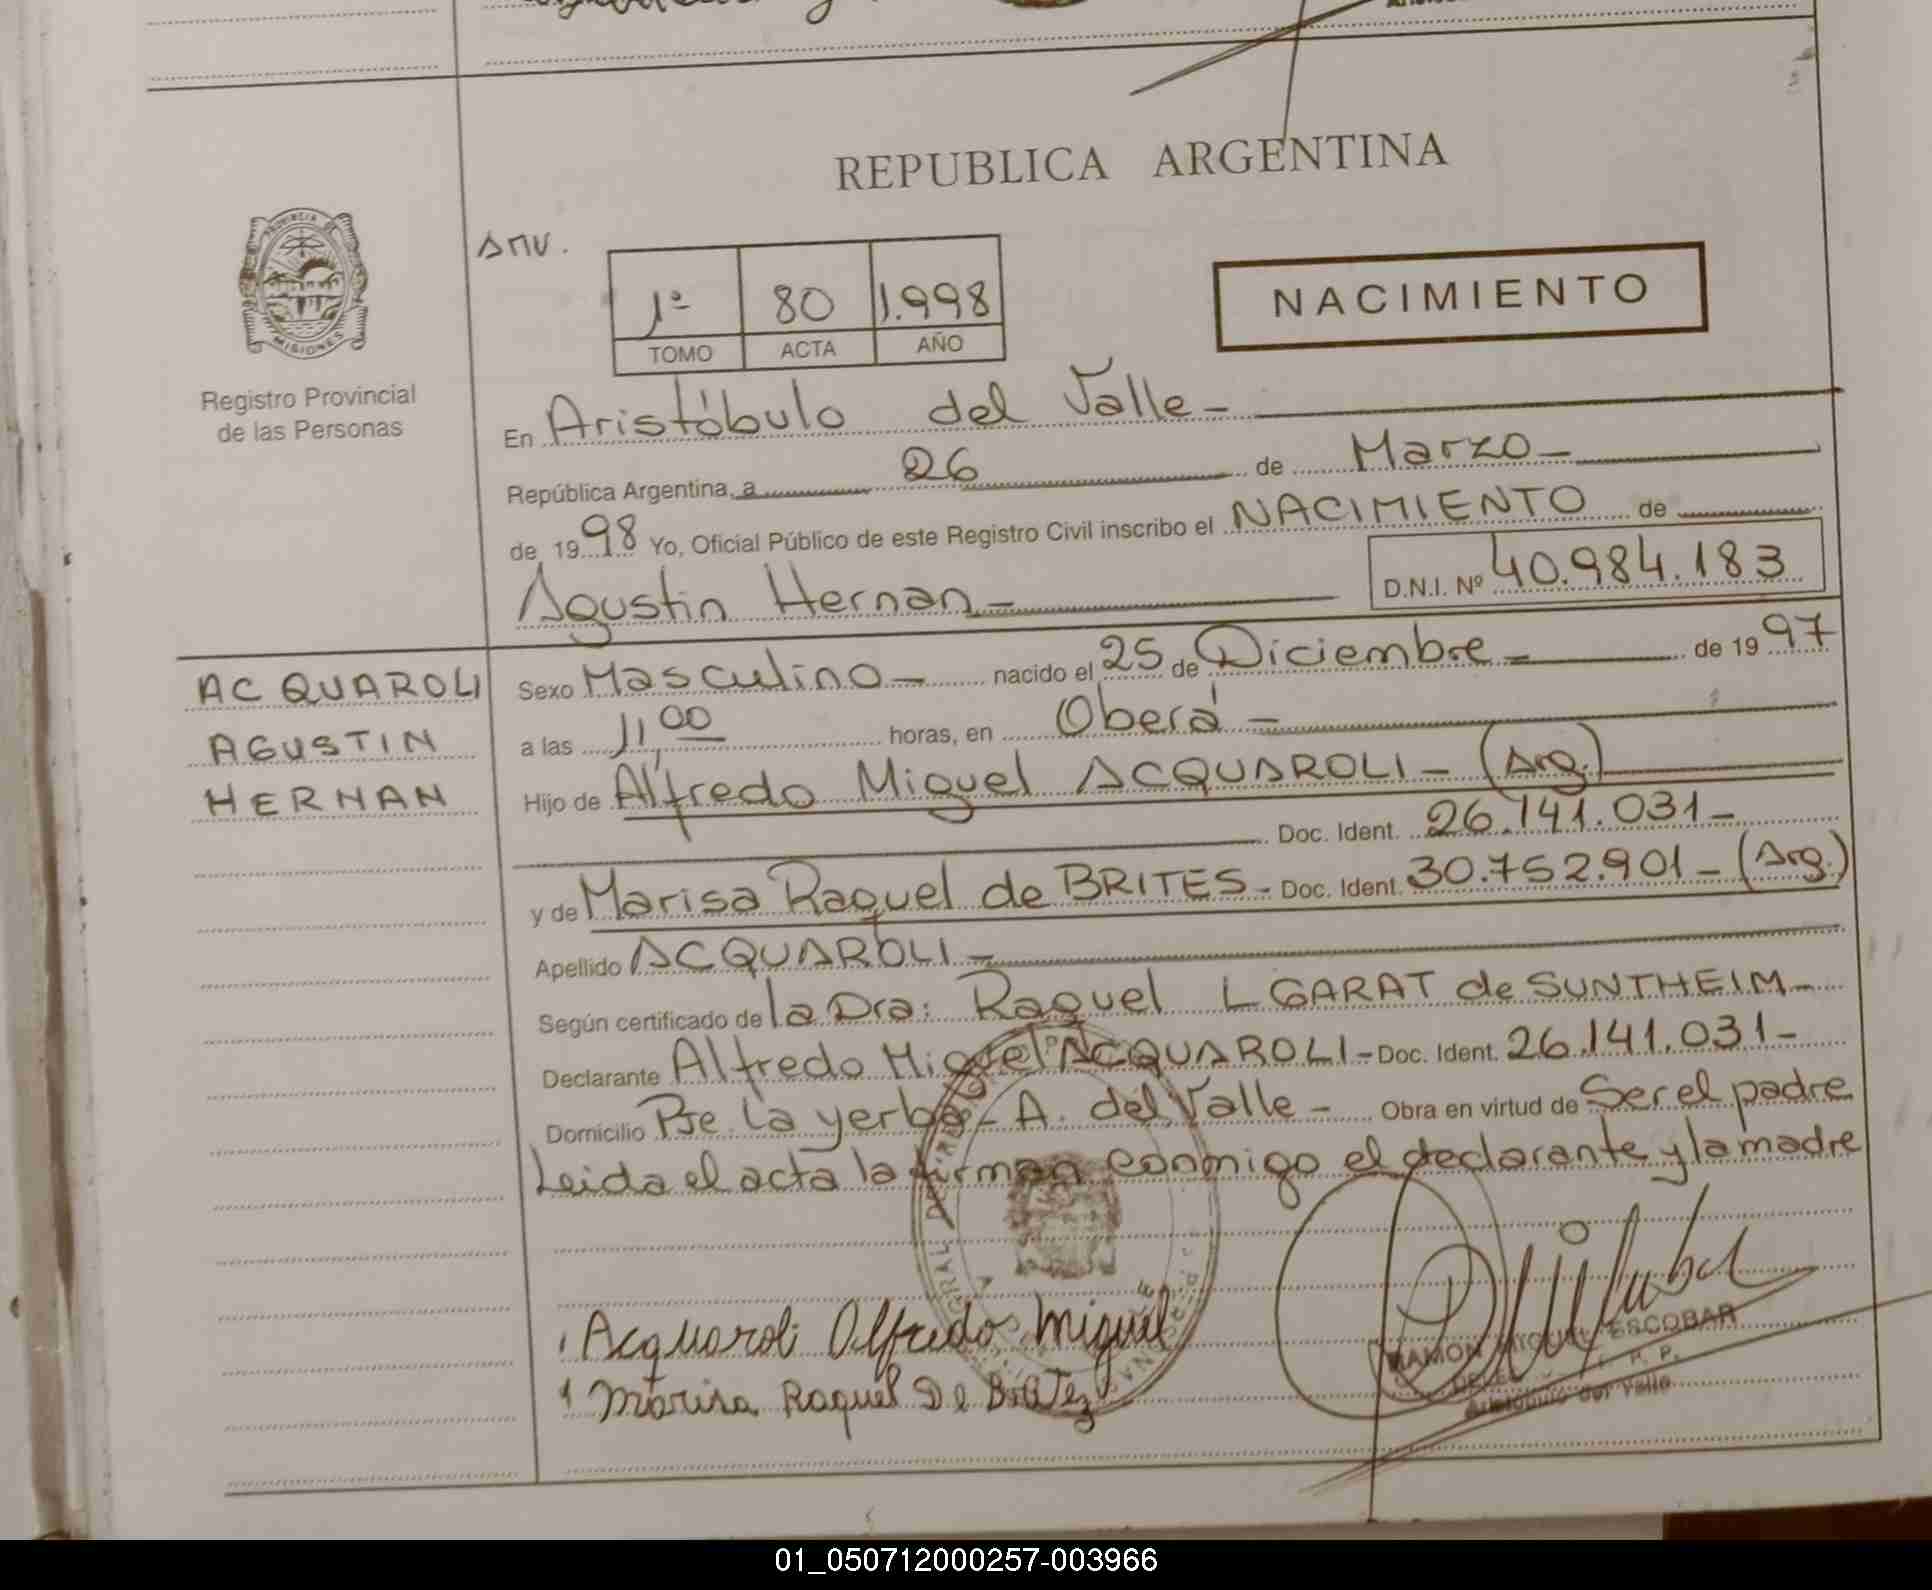 REPUBLICA ARGENTINA
PROVINCIA DE
MISIONES
Registro Provincial
de las Personas
1º 80 1.998
TOMO ACTA AÑO
NACIMIENTO
En Aristóbulo del Valle-
República Argentina, a 26 de Marzo-
de 1998 Yo, Oficial Público de este Registro Civil inscribo el NACIMIENTO de
Agustin Hernan- D.N.I. Nº 40.984.183
ACQUAROLI
AGUSTIN
HERNAN
Sexo Masculino- nacido el 25 de Diciembre- de 1997
a las 11,00 horas, en Oberá-
Hijo de Alfredo Miguel ACQUAROLI- (Arg.)
Doc. Ident. 26.141.031-
y de Marisa Raquel de BRITES- Doc. Ident. 30.752.901- (Arg.)
Apellido ACQUAROLI-
Según certificado de la Dra: Raquel L GARAT de SUNTHEIM-
Declarante Alfredo Miguel ACQUAROLI- Doc. Ident. 26.141.031-
Domicilio Pje. La yerba- A. del Valle- Obra en virtud de Ser el padre
Leida el acta la firman conmigo el declarante y la madre
Acquaroli Alfredo Miguel
Marisa Raquel De
RAMON MIGUEL ESCOBAR
Aristóbulo del Valle
01_050712000257-003966